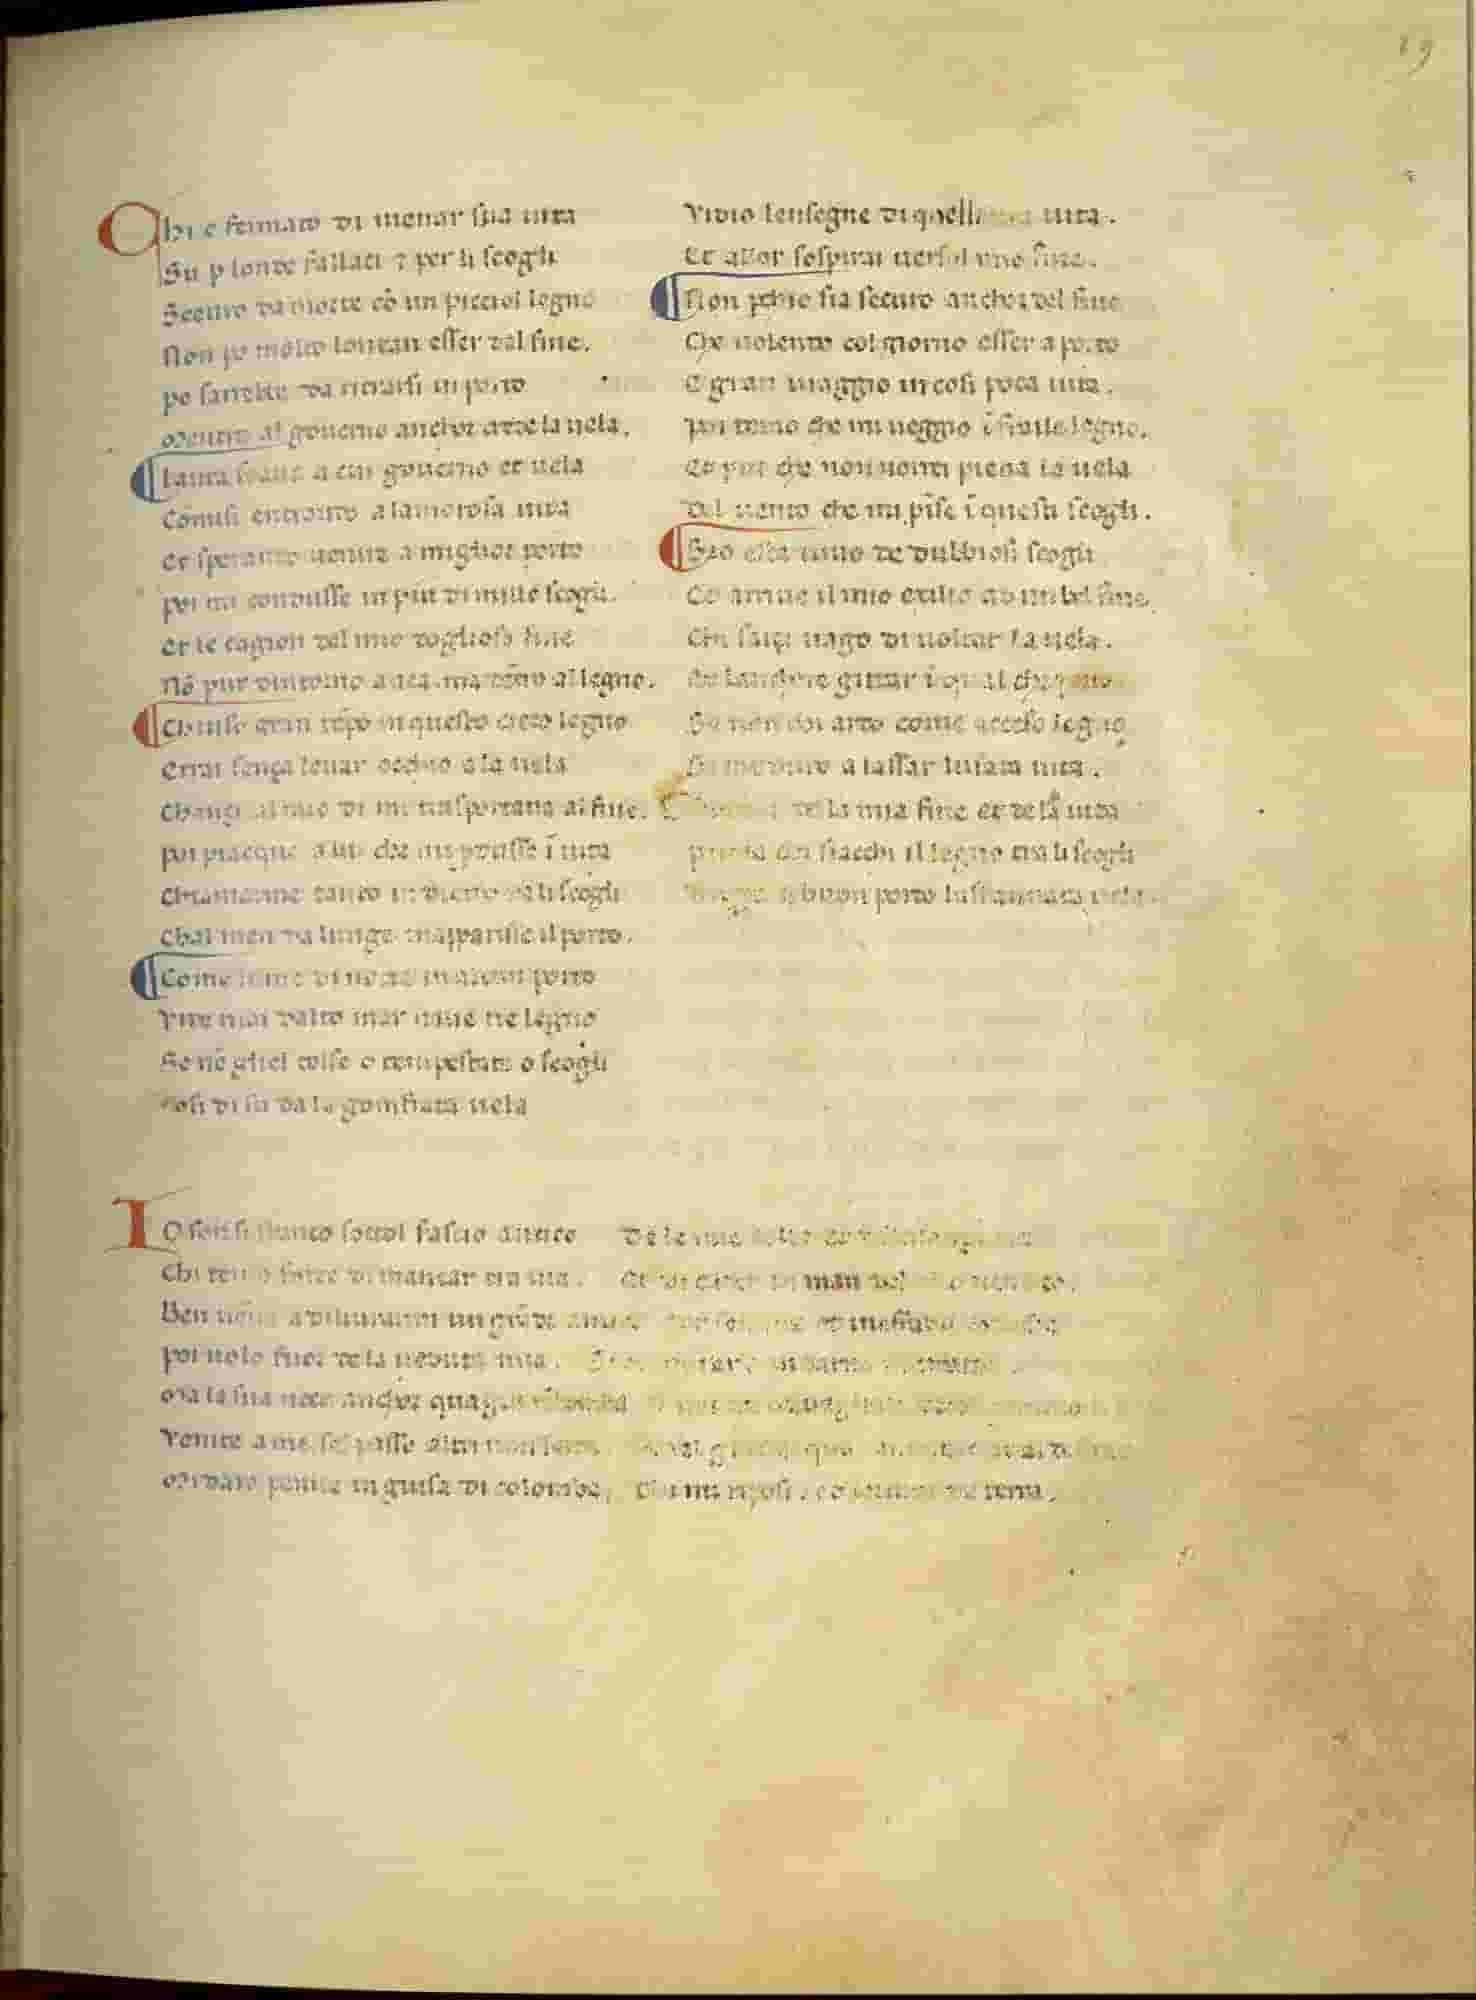 19
Chi e fermato di menar sua uita
Su p londe fallaci ⁊ per li scogli
Sceuro da morte cō un picciol legno
Non po molto lontan esser dal fine.
po sarrebbe da ritrarsi in porto
Mentre al gouerno anchor crede la uela.
Laura soaue a cui gouerno et uela
Cōmisi entrando a lamorosa uita
Et sperando uenire a miglior porto
poi mi condusse in piu di mille scogli.
Et le cagion del mio doglioso fine
Nō pur dintorno auea. ma dētro al legno.
Chiuso gran tēpo in questo cieco legno
Errai sença leuar occhio a la uela
Chanzi al mio di mi trasportaua al fine.
poi piacque a lui che mi produsse ī uita
Chiamarme tanto indietro da li scogli
Chal men da lunge mapparisse il porto.
Come lume di notte in alcun porto
Vide mai dalto mar naue ne legno
Se nō gliel tolse o tempestate o scogli
Cosi di su da la gomfiata uela
Vidio lensegne di quellaltra uita.
Et allor sospirai uersol mio fine.
Non perchio sia securo anchor del fine
Che uolendo col giorno esser a porto
E gran uiaggio in cosi poca uita.
poi temo che mi ueggio ī fraile legno.
Et piu che non uorrei piena la uela
Del uento che mi pīse ī questi scogli.
Sio esca uiuo de dubbiosi scogli
Et arriue il mio exilio ad un bel fine.
Chi sarei uago di uoltar la uela.
Et lanchore gittar ī qual che porto
Se non chi ardo come acceso legno
Si me duro a lassar lusata uita.
de la mia fine et de la uita
prima chi fiacchi il legno tra li scogli
a buon porto laffannata uela.
Io son si stanco sottol fascio antico De le mie colpe
Chi temo forte di mancar tra uia. Et di cader in man del mio nemico.
Ben uēne a diliurarmi un grāde amico per somma et ineffabil
poi uolo fuor de la ueduta mia.
Ma la sua uoce anchor qua giu rībomba
Venite a me. sel passo altri non serra.
Mi dara penne in guisa di colomba, Chi mi riposi. et leuimi da terra.